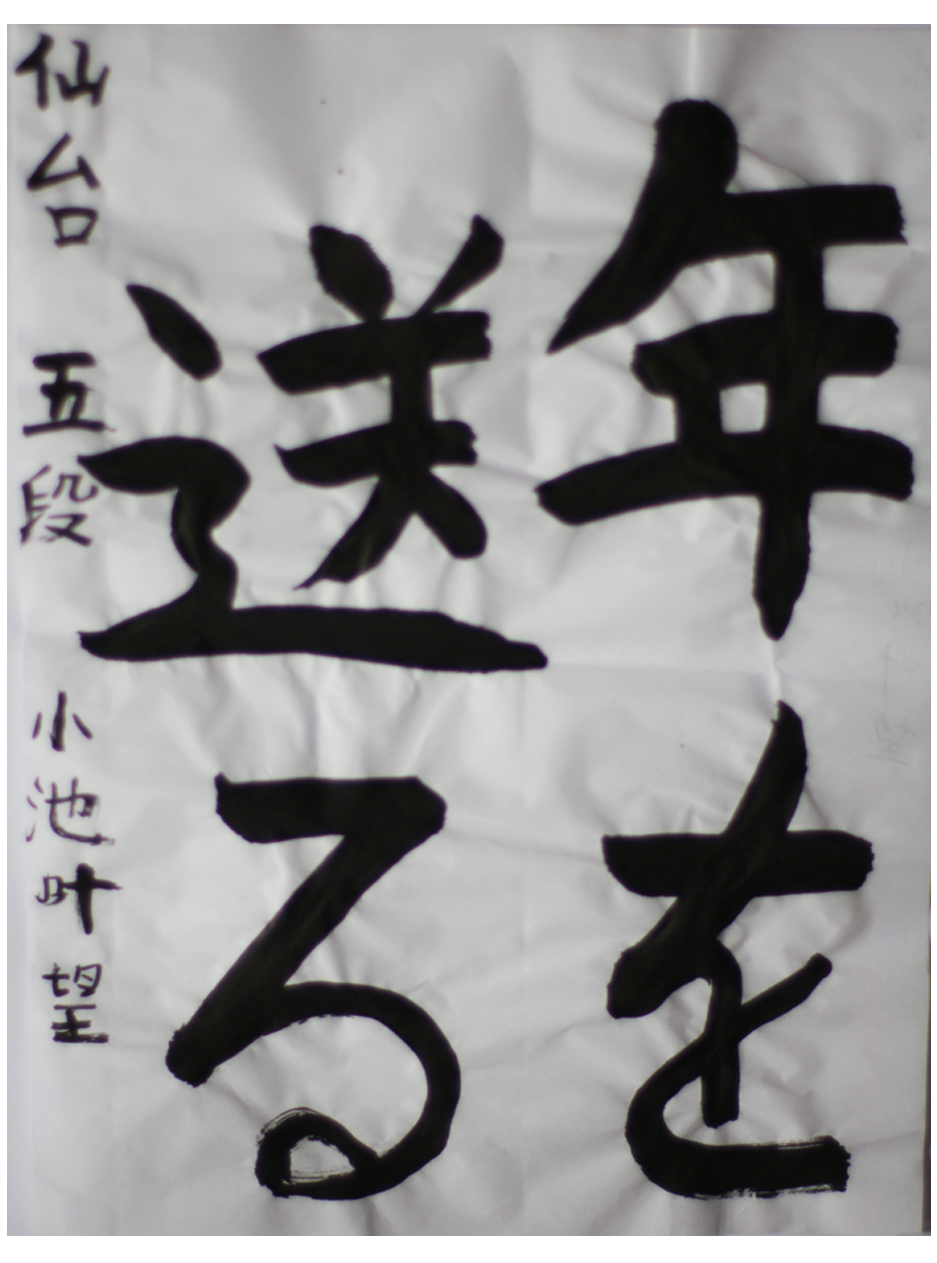 年を
送る
仙台 五段 小池叶望